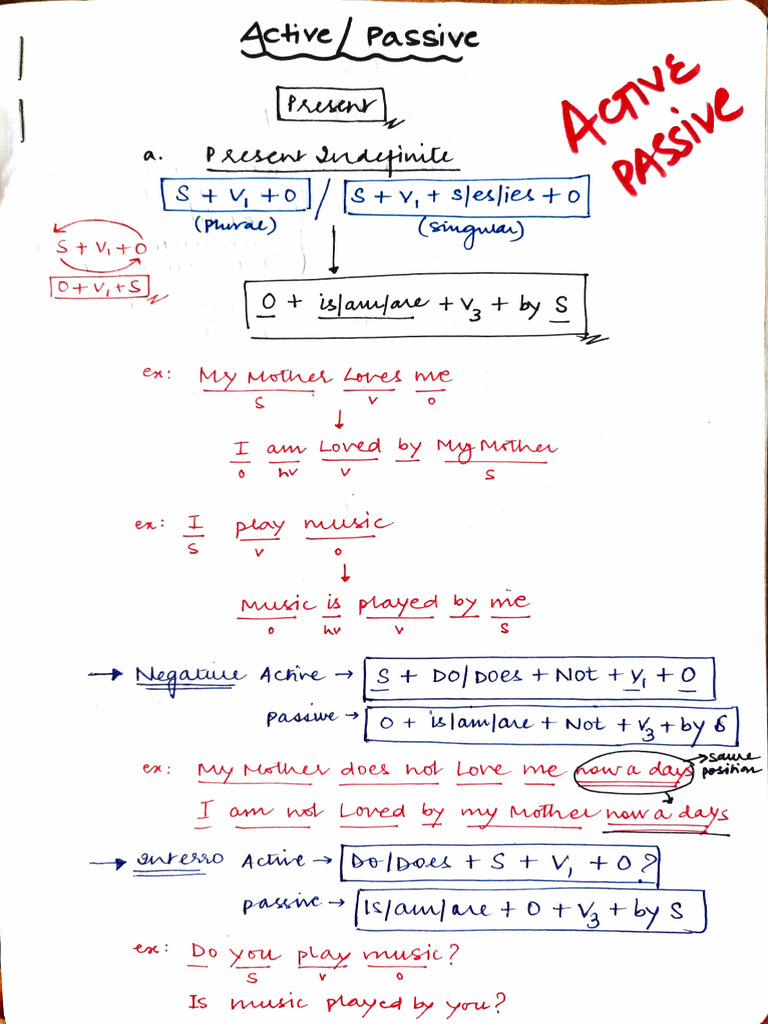 Active / Passive
ACTIVE
PASSIVE
Present
a. Present Indefinite
S + V₁ + O / S + V₁ + s/es/ies + O
(plural) (singular)
S + V₁ + O
O + V₁ + S
O + is/am/are + V₃ + by S
ex: My Mother Loves me
S V O
I am Loved by My Mother
O hv V S
ex: I play music
S V O
Music is played by me
O hv V S
→ Negative Active → S + DO/DOES + Not + V₁ + O
passive → O + is/am/are + Not + V₃ + by S
ex: My Mother does not Love me now a days → same position
I am not Loved by my Mother now a days
→ Interro Active → DO/DOES + S + V₁ + O ?
passive → Is/am/are + O + V₃ + by S
ex: Do you play music?
S V O
Is music played by you?